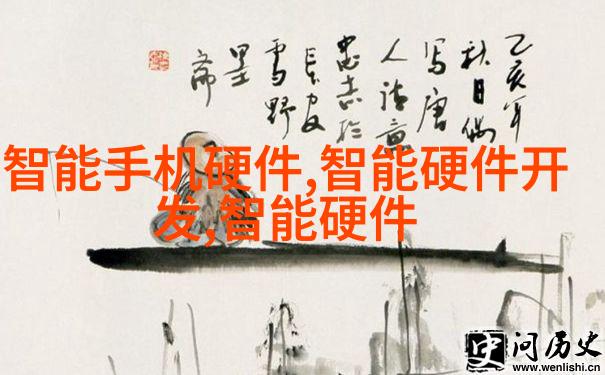 乙亥年
秋日偶
写唐
人诗意
忠志于
长安
雪野
墨
斋
智能手机硬件,智能硬件开
发,智能硬件
问历史
www.wenlishi.cn